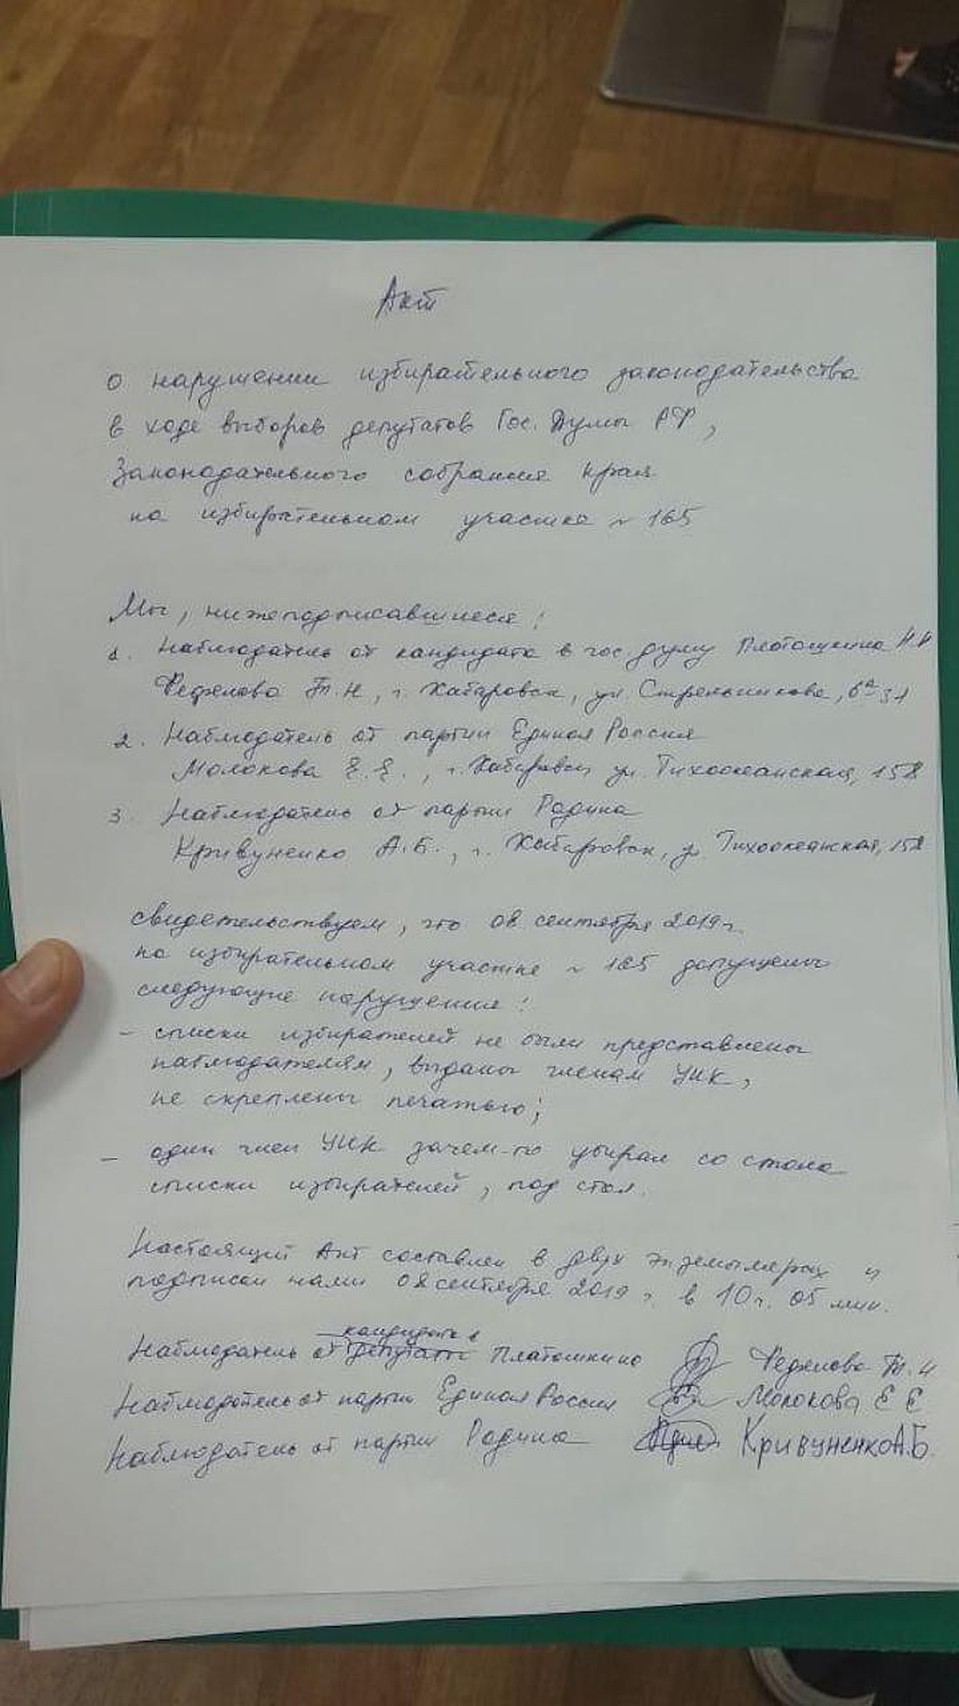 Акт
о нарушении избирательного законодательства
в ходе выборов депутатов Гос. Думы РФ,
Законодательного собрания края
на избирательном участке № 165
Мы, нижеподписавшиеся:
1. Наблюдатель от кандидата в гос. думу Платошкина Н.Н
Т.Н, г. Хабаровск, ул. Стрельникова, 6а
2. Наблюдатель от партии Единая Россия
Молокова Е.Е., г. Хабаровск ул. Тихоокеанская, 158
3. Наблюдатель от партии Родина
Кривуненко А.Б., г. Хабаровск, у. Тихоокеанская, 158
свидетельствуем, что 08 сентября 2019 г.
на избирательном участке № 165 допущены
следующие нарушения:
- списки избирателей не были представлены
наблюдателям, выданы членам УИК,
не скреплены печатью;
- один член УИК зачем-то убирал со стола
списки избирателей, под стол.
Настоящий Акт составлен в двух экземплярах и
подписан нами 08 сентября 2019 г. в 10 ч. 05 мин.
кандидата в
Наблюдатель от депутата Платошкина Т. Н
Наблюдатель от партии Единая Россия Молокова Е Е
Наблюдатель от партии Родина Кривуненко А.Б.